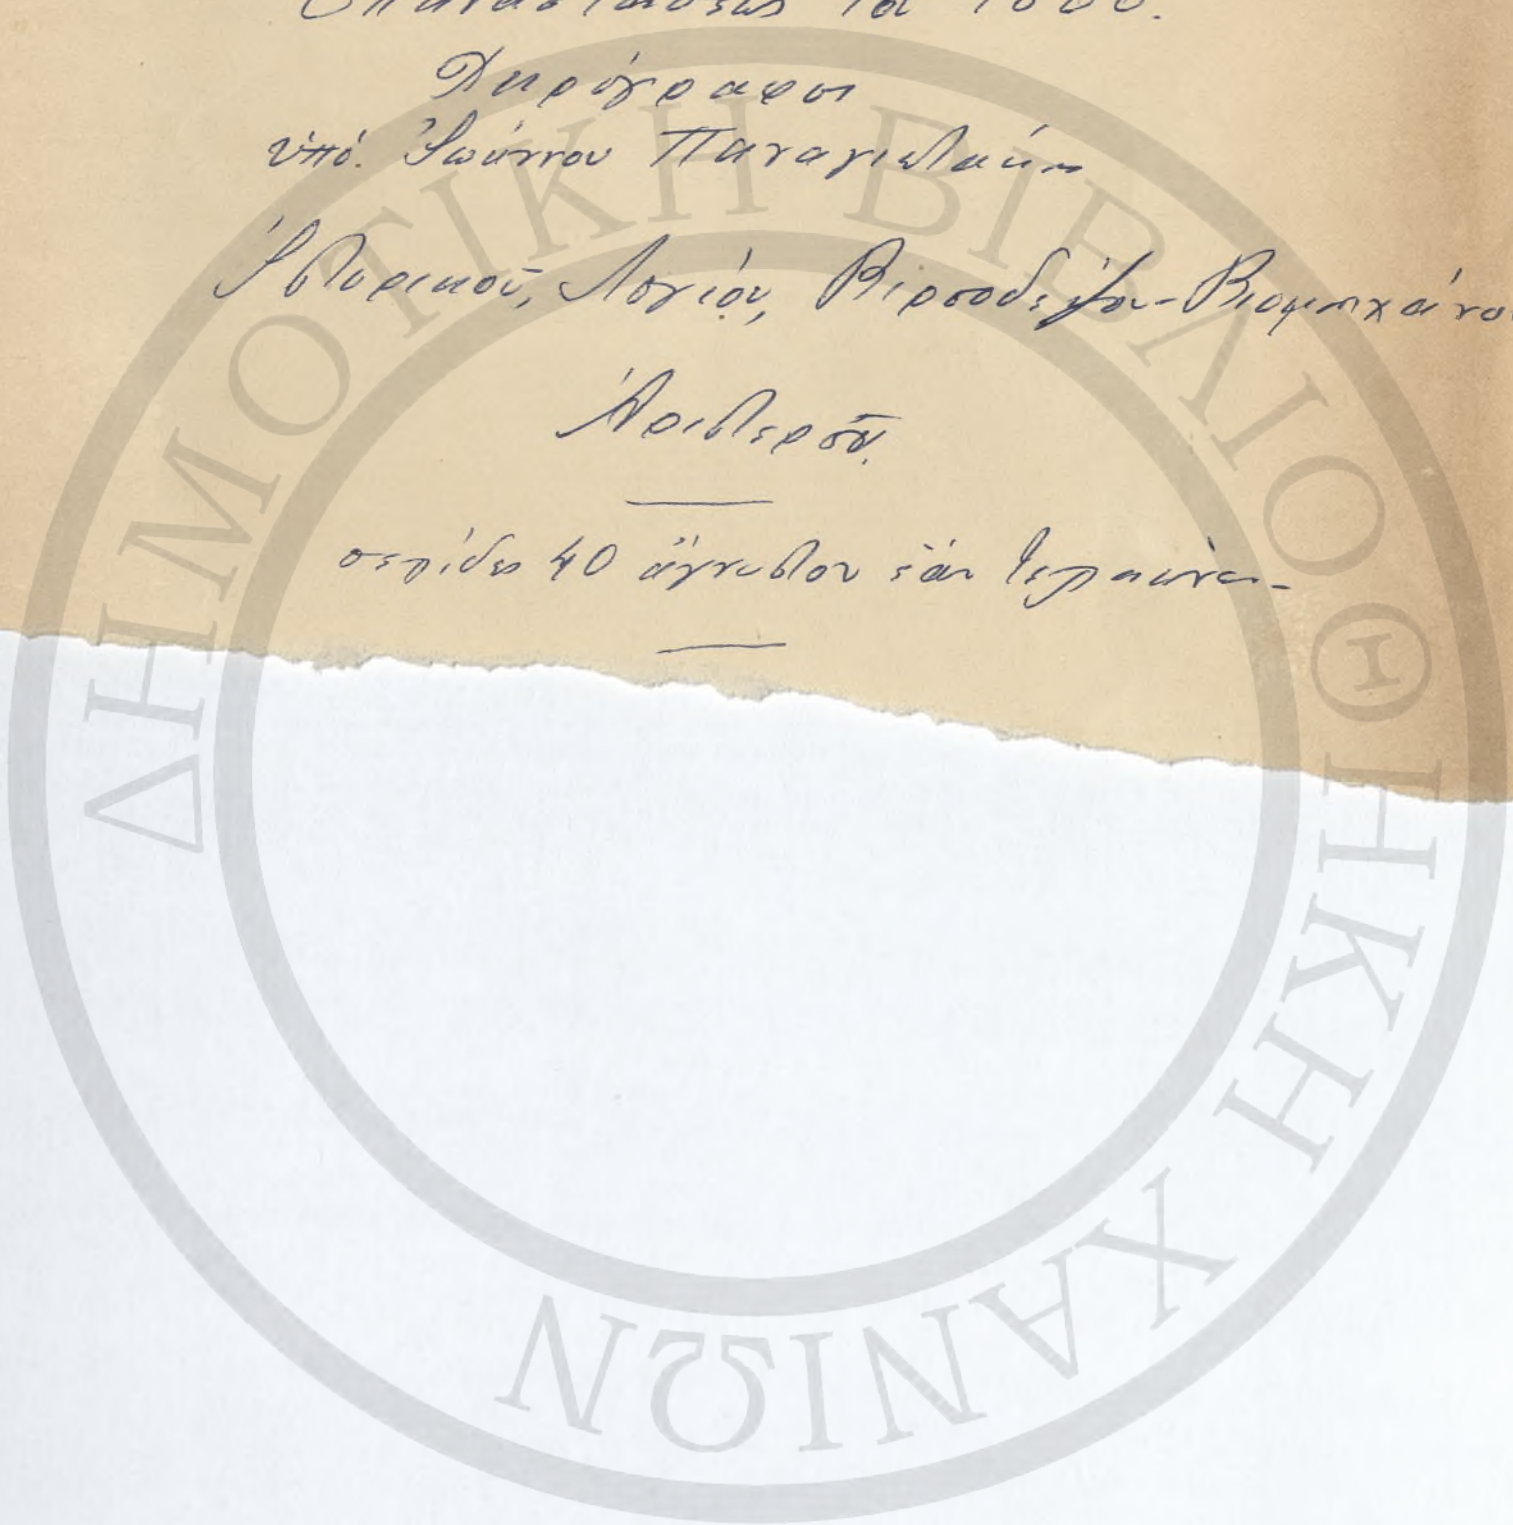 Ἐπαναστάσεως τοῦ 1866.
Χειρόγραφοι
ὑπό. Ἰωάννου Παναγιωτάκη
Ἱστορικοῦ, Λογίου, Βυρσοδέψου-Βιομηχάνου
Ἀριστεροῦ.
σελίδες 40 ἄγνωστον ἐάν τελειώνει-
ΔΗΜΟΤΙΚΗ ΒΙΒΛΙΟΘΗΚΗ ΧΑΝΙΩΝ